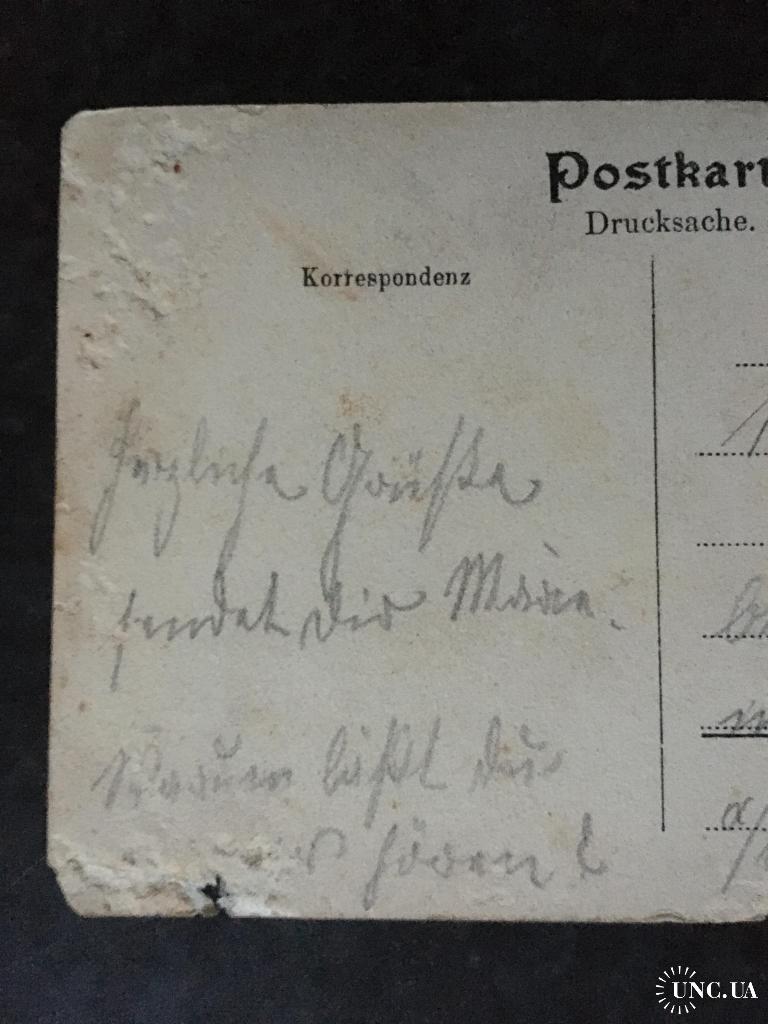 Postkart
Drucksache.
Korrespondenz
Herzliche Grüße
sendet Dir
Warum läßt Du
hören?
in
UNC.UA